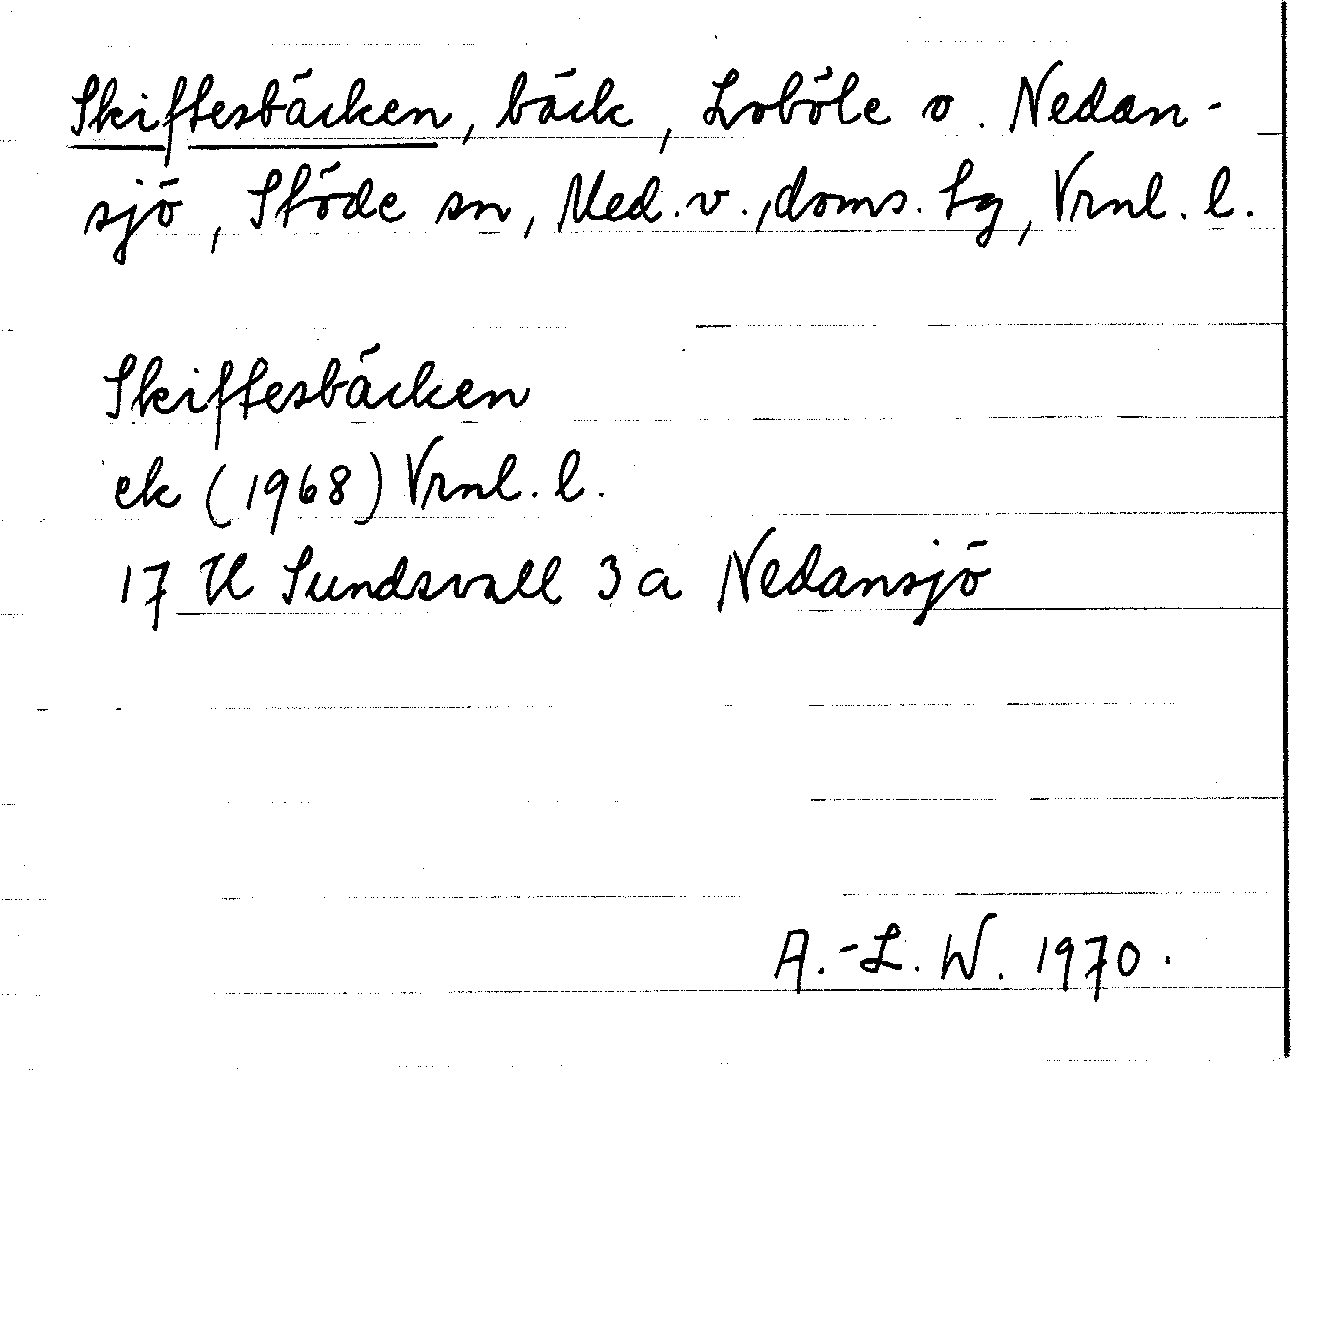 Skiftesbäcken, bäck, Loböle o. Nedan-
sjö, Stöde sn, Med. v., doms. tg, Vrnl. l.
Skiftesbäcken
ek (1968) Vrnl. l.
17 H Sundsvall 3a Nedansjö
A.-L. W. 1970.